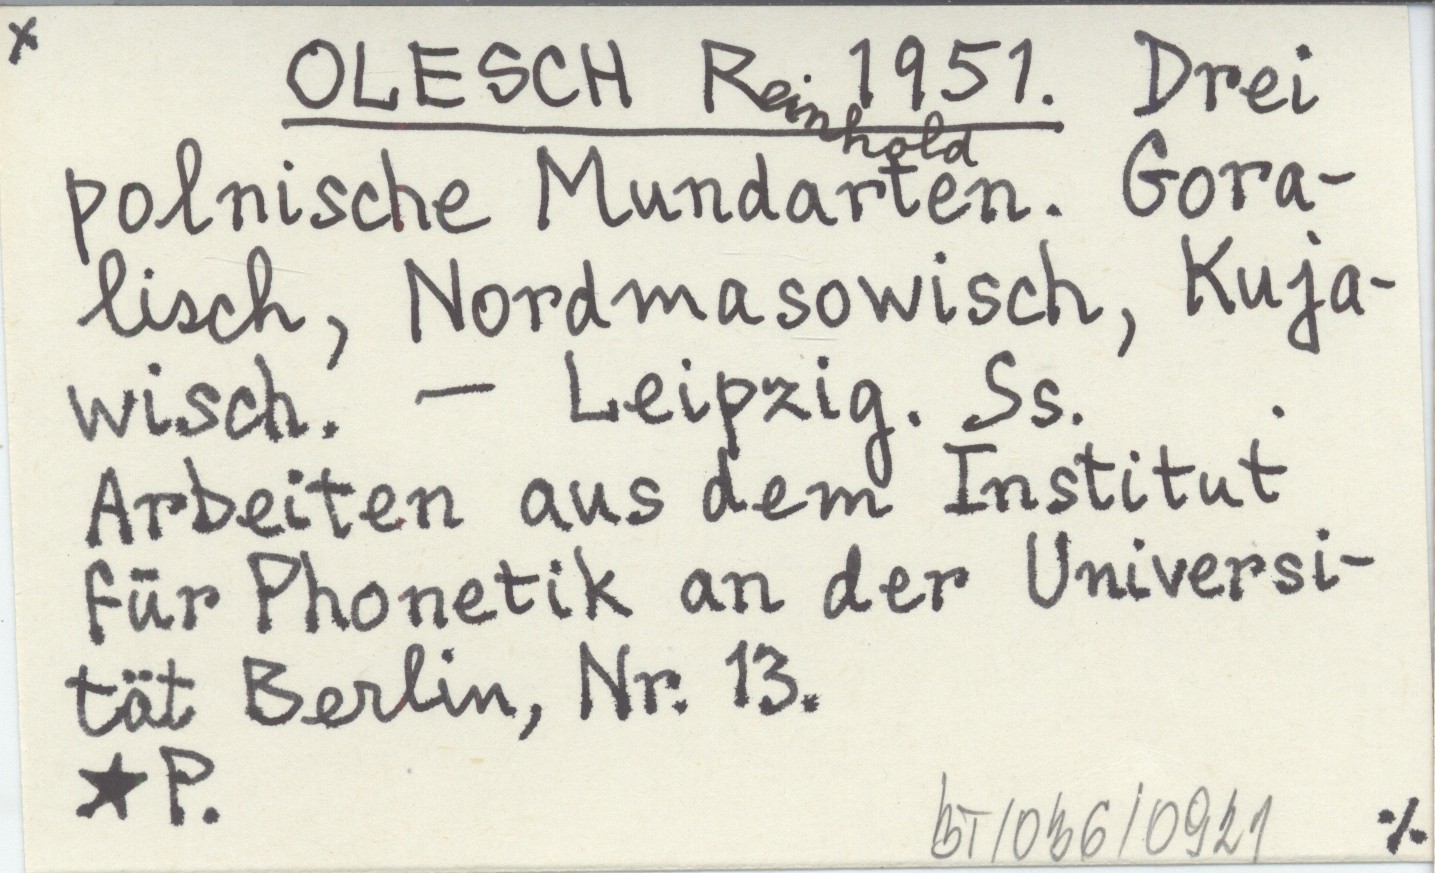 x
OLESCH Reinhold 1951. Drei
polnische Mundarten. Gora-
lisch, Nordmasowisch, Kuja-
wisch. — Leipzig. Ss.      .
Arbeiten aus dem Institut
für Phonetik an der Universi-
tät Berlin, Nr. 13.
★ P.
BT/036/0921
·/.